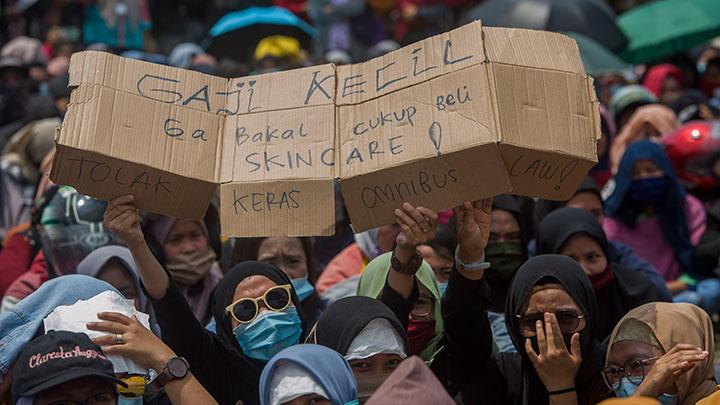 GAJI KECIL
Ga Bakal CUKUP BELi
SKINCARE!
TOLAK KERAS OMNIBUS LAW!
Claresta